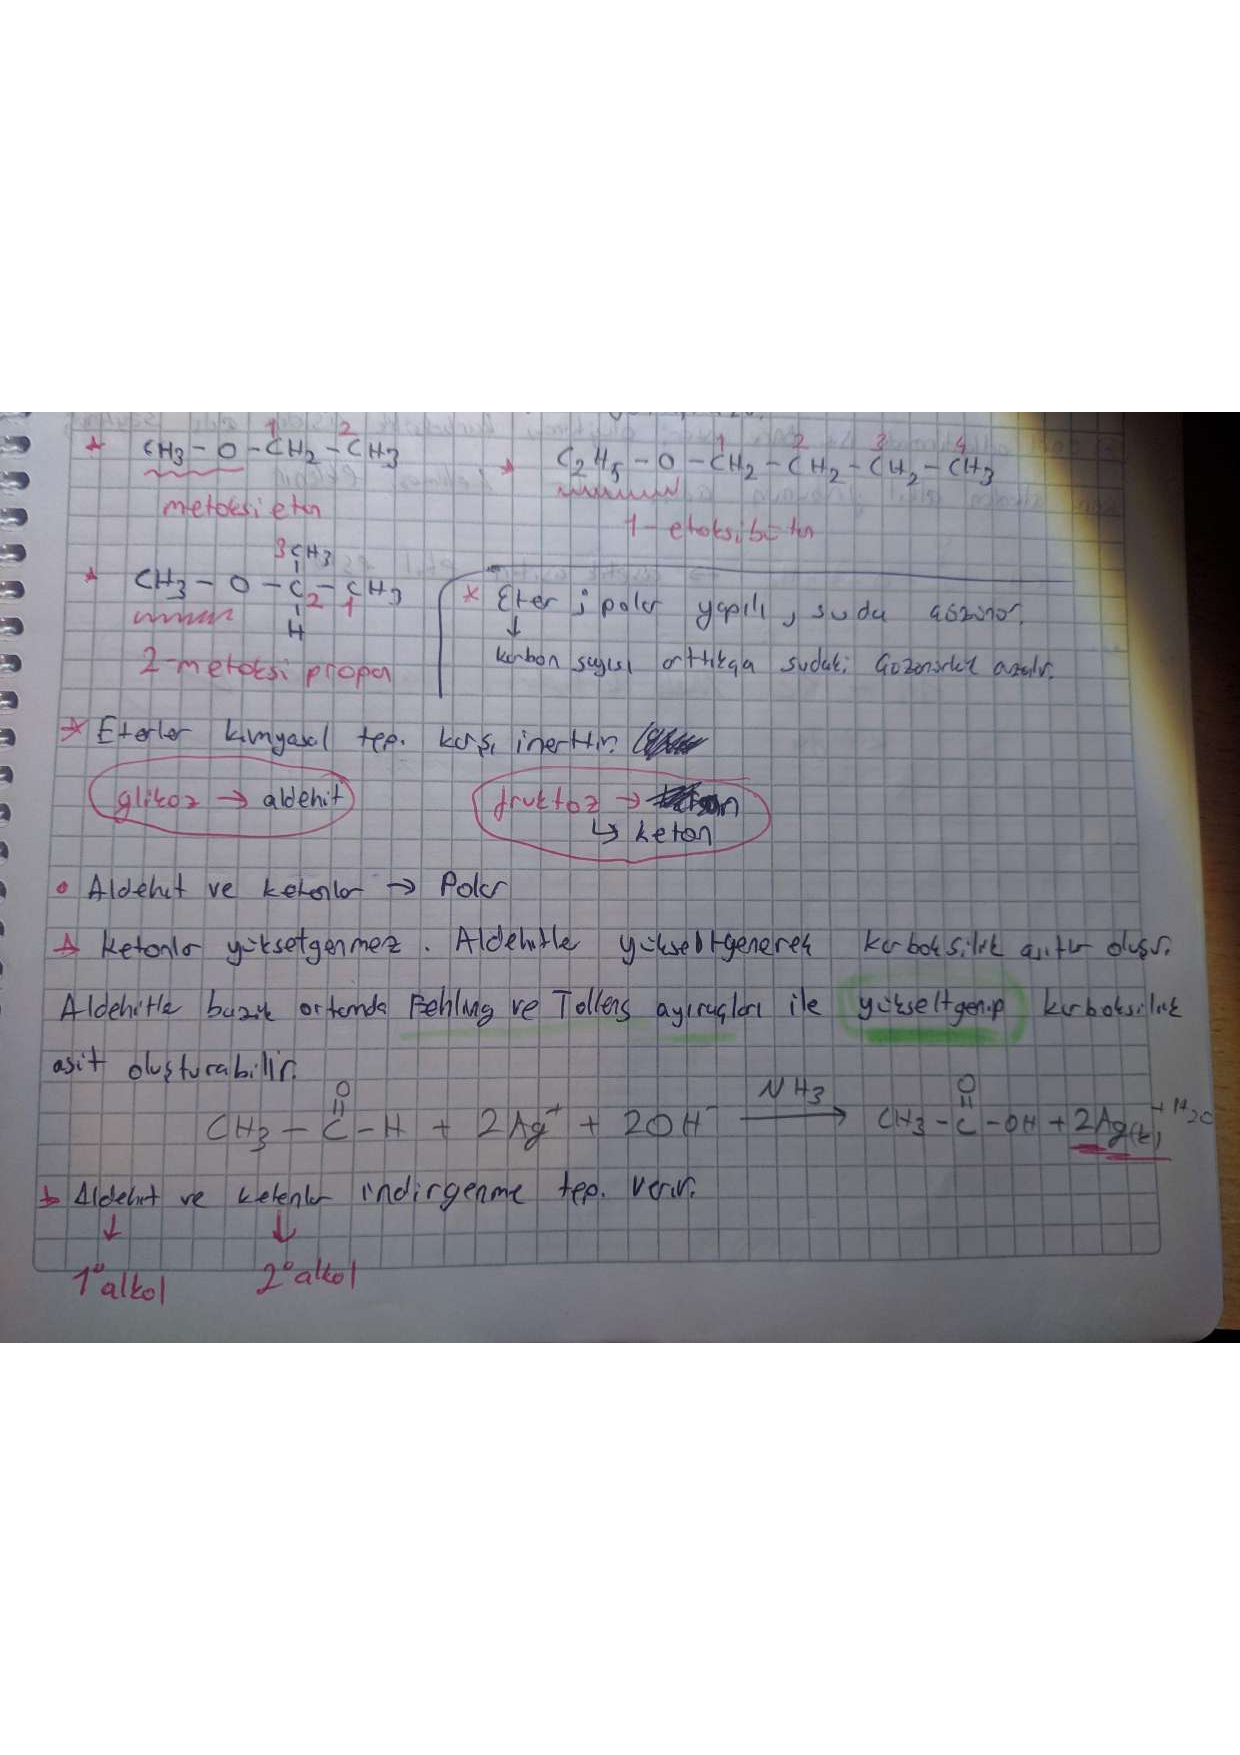 * CH3 - O - CH2 - CH3
1 2
metoksi etan
* C2H5 - O - CH2 - CH2 - CH2 - CH3
1 2 3 4
1-etoksibütan
3CH3
* CH3 - O - C - CH3
2 1
H
2-metoksi propan
* Eter ; polar yapılı, suda çözünür.
↓
karbon sayısı arttıkça sudaki çözünürlük azalır.
* Eterler kimyasal tep. karşı inerttir.
glikoz → aldehit
fruktoz →
↳ keton
• Aldehit ve ketonlar → Polar
* Ketonlar yüksetgenmez. Aldehitle yükseltgenerek karboksilik asitler oluşur.
Aldehitle bazik ortamda Fehling ve Tollens ayıraçları ile yükseltgenip karboksilik
asit oluşturabilir.
O
CH3 - C - H + 2Ag+ + 2OH- NH3 → CH3 - C - OH + 2Ag(k) + H2O
O
* Aldehit ve ketonlar indirgenme tep. verir.
↓ ↓
1° alkol 2° alkol